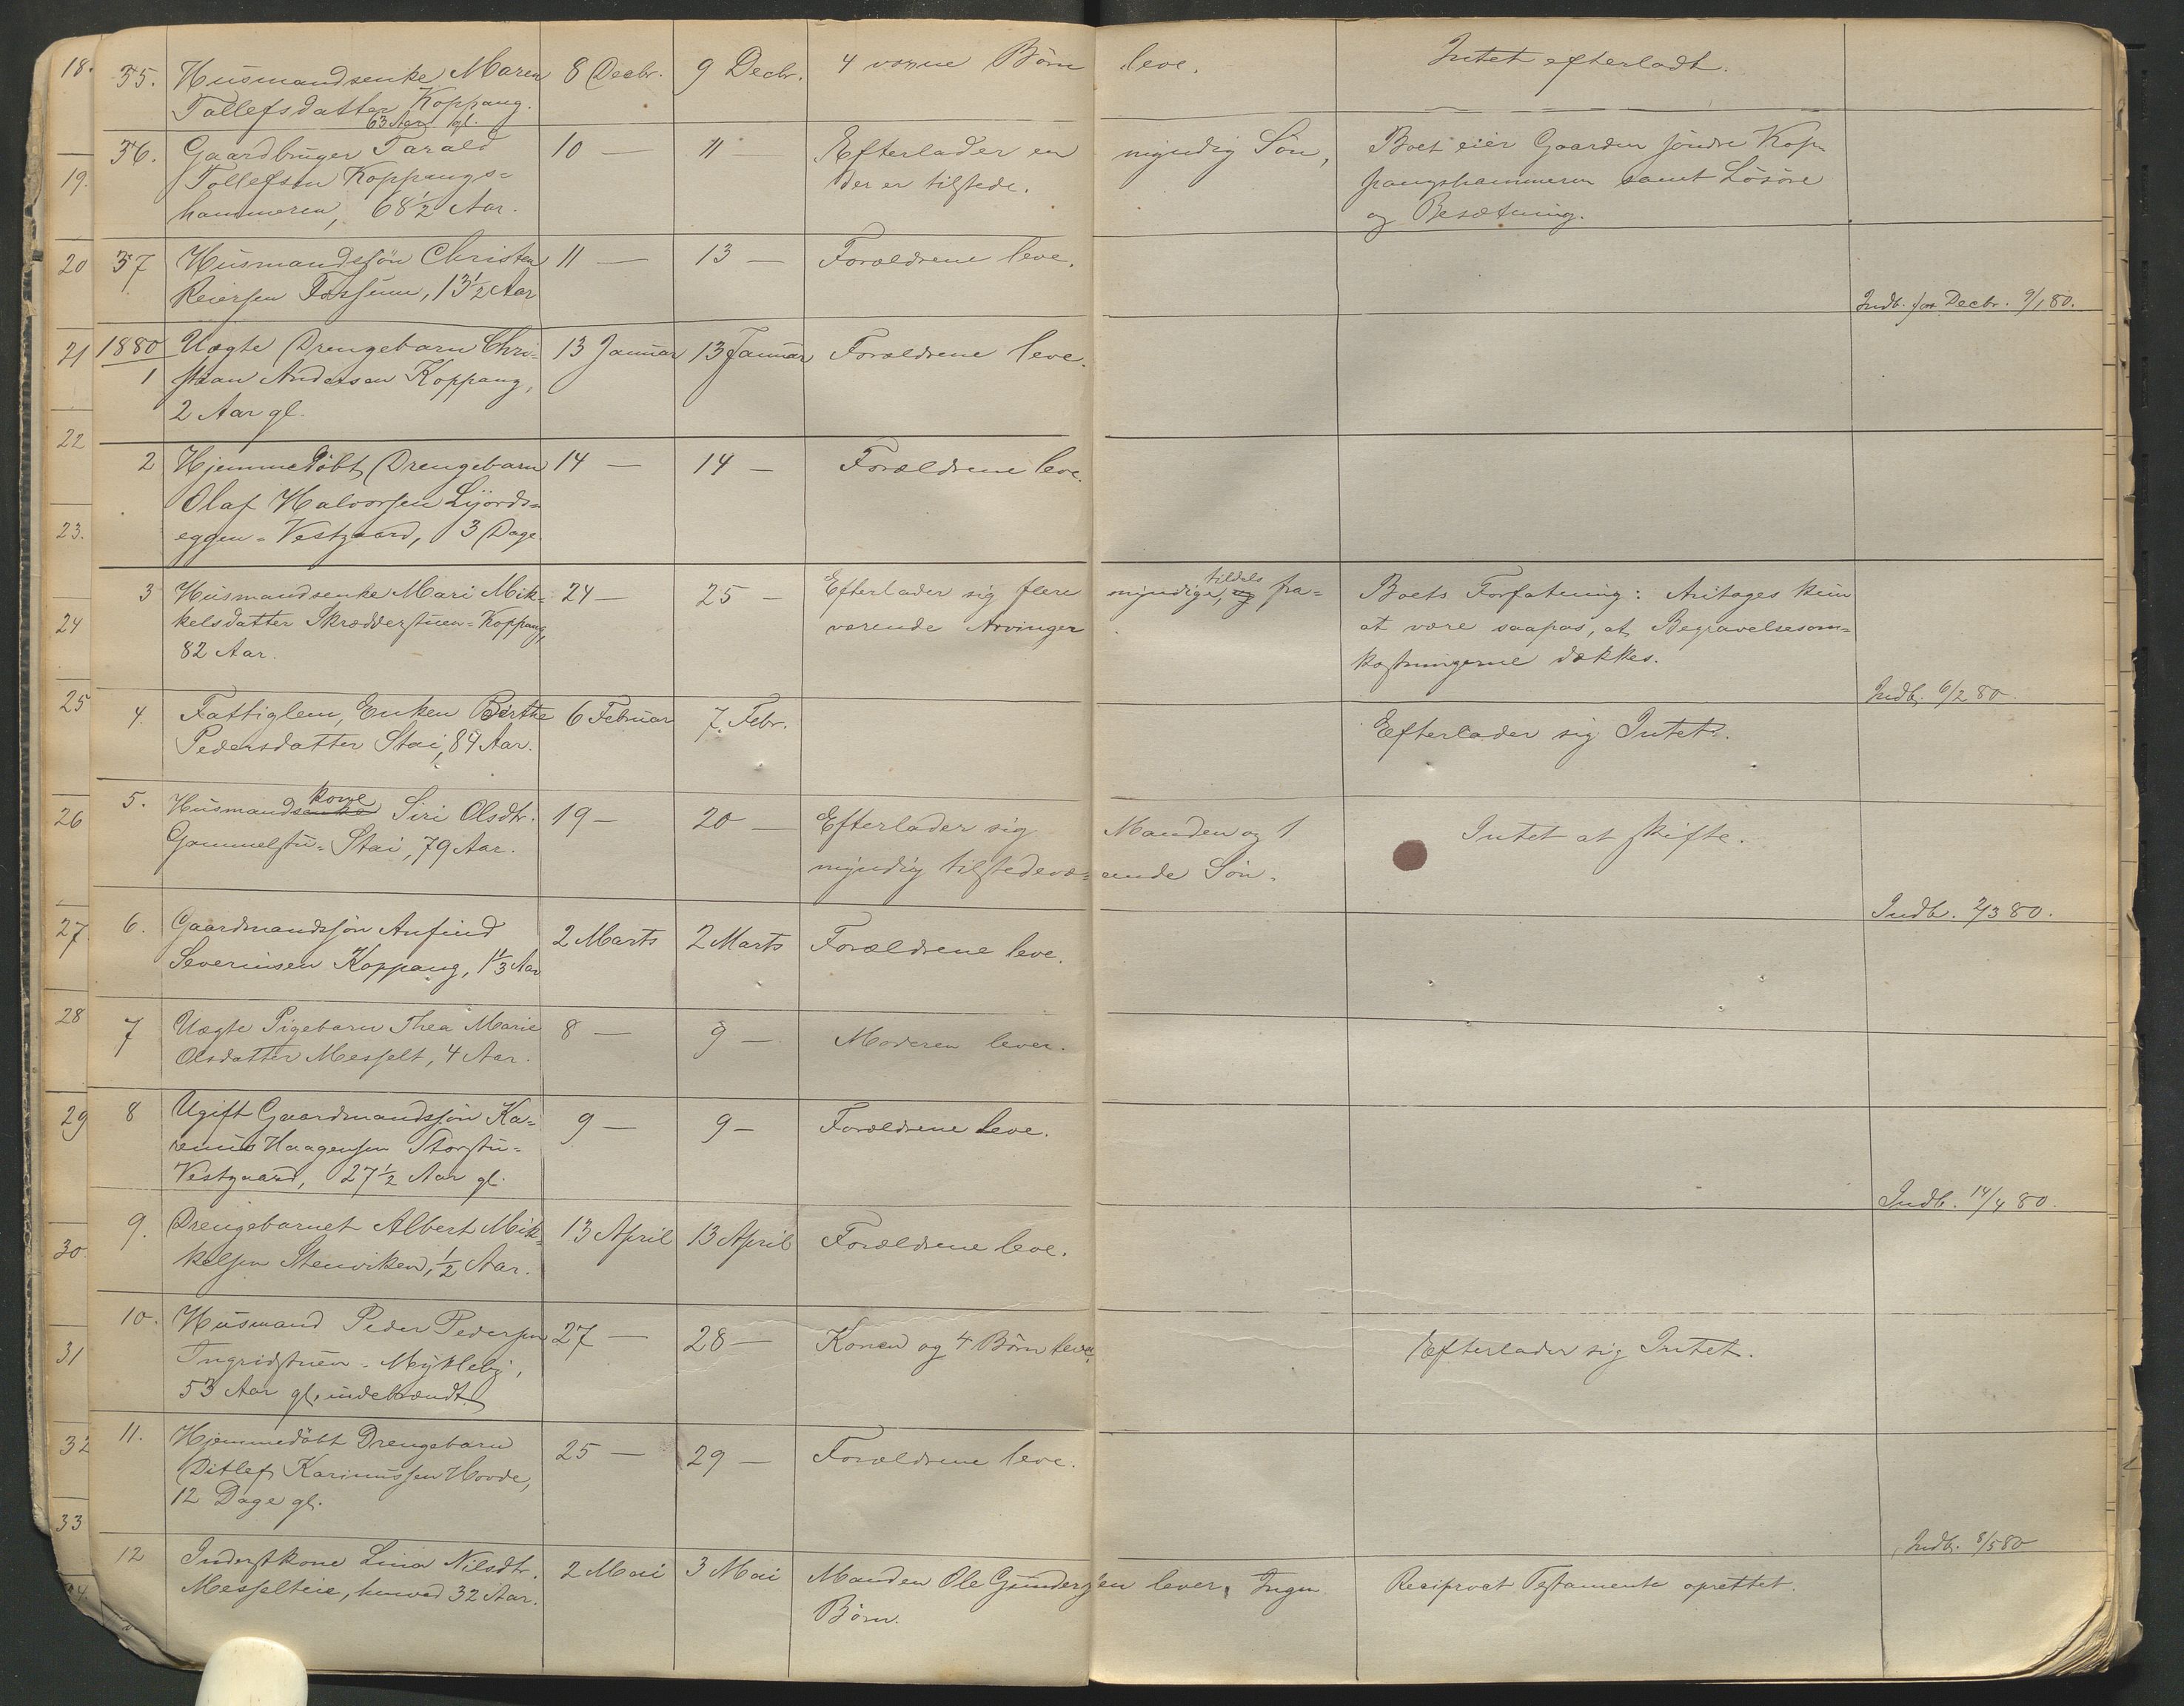 18. 35. Husmandsenke Maren 8 Decbr. 9 Decbr. 4 voxne Børn leve. Intet efterladt.
Tollefsdatter Koppang.
63 Aar gl.
36. Gaardbruger Tarald 10 — 11 Efterlader en myndig Søn, Boet eier Gaarden søndre Kop-
19. Tollefsen Koppangs= der er tilstede. pangshammeren samt Løsøre
hammeren, 68½ Aar. og Besætning.
20 37 Husmandssøn Christen 11 — 13 — Forældrene leve.
Reiersen Fossum, 13½ Aar
Indb. for Decbr. 9/1 80.
21 1880 Uægte Drengebarn Chri- 13 Januar 13 Januar Forældrene leve.
1 stian Andersen Koppang,
2 Aar gl.
22
2 Hjemmedøbt Drengebarn 14 — 14 — Forældrene leve.
Olaf Halvorsen Liørds=
23. eggen = Vestgaard, 3 Dage
3 Husmandsenke Mari Mik- 24 — 25 — Efterlader sig flere myndige, tildels og fra= Boets Forfatning: Antages kun
24 kelsdatter Skrædderstuen = Koppang, værende Arvinger at være saapas, at Begravelsesom=
82 Aar. kostningerne dækkes.
Indb. 6/2 80.
25 4. Fattiglem, Enken Berthe 6 Februar 7. Febr. Efterlader sig Intet.
Pedersdatter Stai, 84 Aar.
kone
26 5. Husmandsenke Siri Olsdtr. 19 — 20 — Efterlader sig Manden og 1 Intet at skifte.
Gammelstu = Stai, 79 Aar. myndig tilstedevæ= rende Søn.
Indb. 2/3 80.
27 6. Gaardmandssøn Anfind 2 Marts 2 Marts Forældrene leve.
Severinsen Koppang, 1⅓ Aar
28 7 Uægte Pigebarn Thea Marie 8 — 9 — Moderen lever.
Olsdatter Messelt, 4 Aar.
29 8 Ugift Gaardmandssøn Ka- 9 — 9 — Forældrene leve.
renus Haagensen Storstu=
Vestgaard, 27½ Aar gl.
Indb. 14/4 80.
9. Drengebarnet Albert Mik- 13 April 13 April Forældrene leve.
30. kelsen Stenviken, ½ Aar.
10. Husmand Peder Pedersen 27 — 28 — Konen og 4 Børn leve. Efterlader sig Intet.
31 Ingridstuen - Mykleby,
53 Aar gl, indebrændt.
32 11. Hjemmedøbt Drengebarn 25 — 29 — Forældrene leve.
Ditlef Karinussen Hovde,
12 Dage gl.
33
Indb. 8/5 80
12 Inderstkone Lina Nilsdtr. 2 Mai 3 Mai Manden Ole Gundersen lever, Ingen Reciprokt Testamente oprettet.
34. Messelteie, henved 32 Aar. Børn.